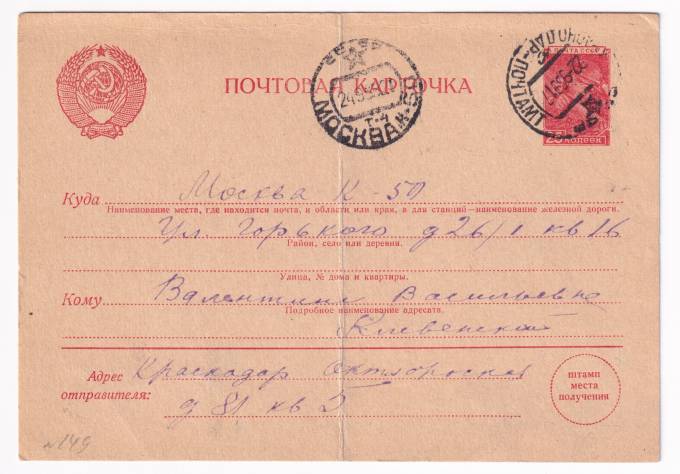 ПОЧТОВАЯ КАРТОЧКА
МОСКВА
ПОЧТА СССР
КРАСНОДАР-ПОЧТАМТ
25 КОПЕЕК
Куда Москва К-50
Наименование места, где находится почта, и области или края, а для станций—наименование железной дороги.
Ул. Горького д 26/1 кв 16
Район, село или деревня.
Улица, № дома и квартиры.
Кому Валентине Васильевне
Подробное наименование адресата.
Адрес отправителя: Краснодар Октябрьская
д 81 кв 5
штамп
места
получения
№149